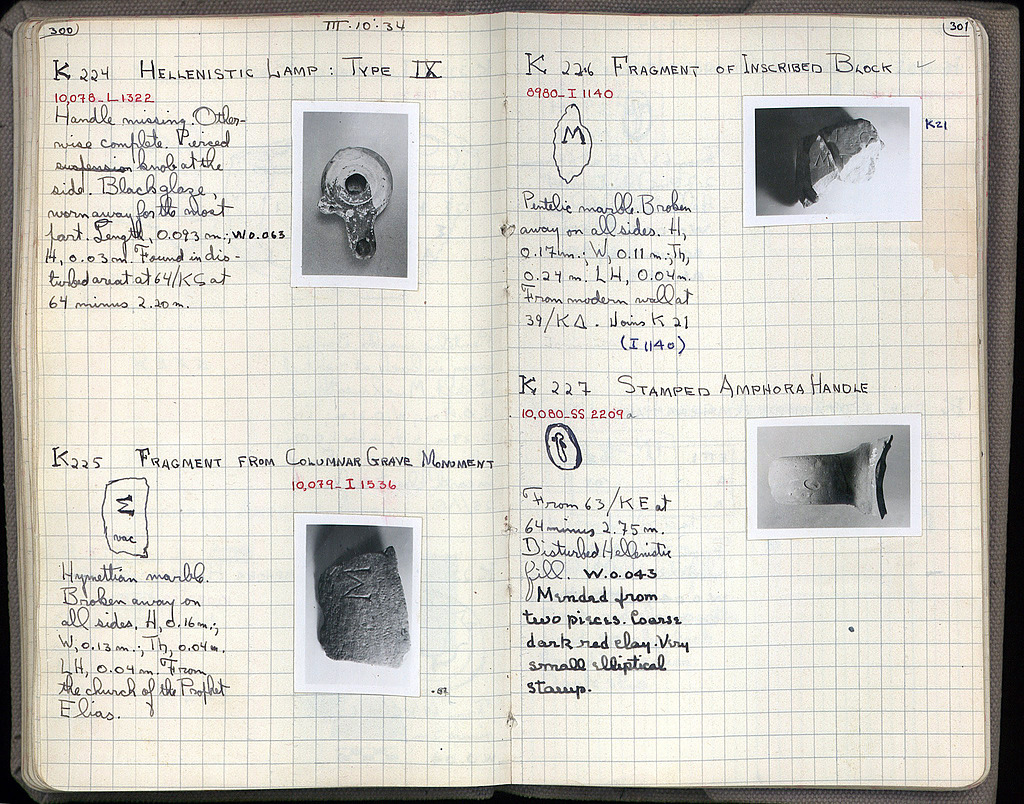 300
III·10·34
K 224 HELLENISTIC LAMP : TYPE IX
10,078_L1322
Handle missing. Other-
wise complete. Pierced
suspension knob at the
side. Black glaze,
worn away for the most
part. Length, 0.093 m.; W 0.063
H, 0.03 m. Found in dis-
turbed area at 64/ΚϚ at
64 minus 2.20 m.
K 225 FRAGMENT FROM COLUMNAR GRAVE MONUMENT
10,079_I 1536
Σ
vac
Hymettian marble.
Broken away on
all sides. H, 0.16 m.;
W, 0.13 m.; Th, 0.04 m.
LH, 0.04 m. From
the church of the Prophet
Elias.
301
K 226 FRAGMENT OF INSCRIBED BLOCK
8980_I 1140
M
K21
Pentelic marble. Broken
away on all sides. H,
0.17 m.; W, 0.11 m.; Th,
0.24 m. LH, 0.04 m.
From modern wall at
39/ΚΔ. Joins K 21
(I 1140)
K 227 STAMPED AMPHORA HANDLE
10,080_SS 2209a
From 63/ΚΕ at
64 minus 2.75 m.
Disturbed Hellenistic
fill. W. 0.043
Mended from
two pieces. Coarse
dark red clay. Very
small elliptical
stamp.